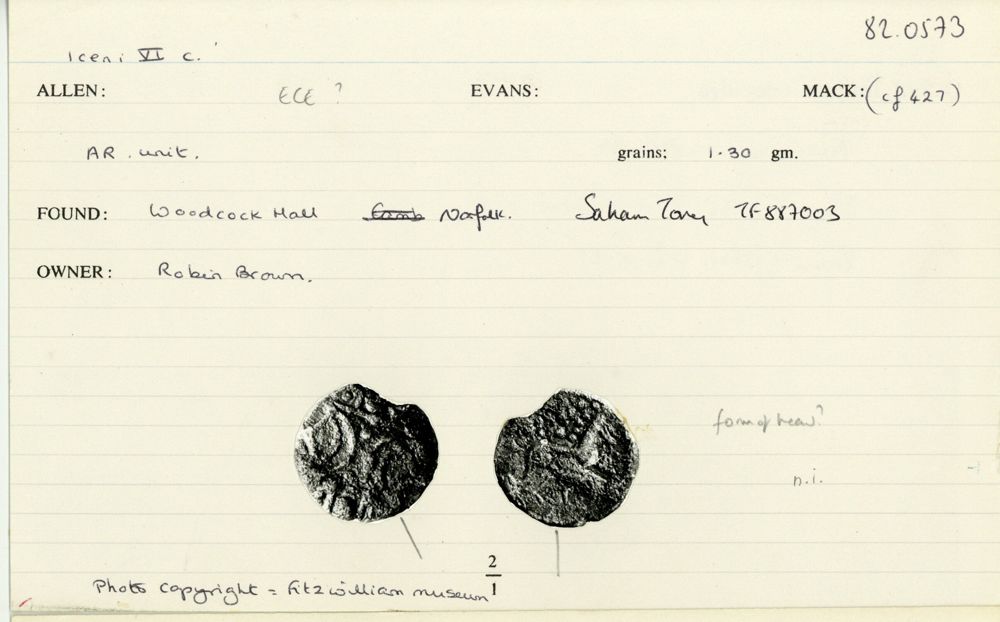 82.0573
Iceni VI c.
ALLEN: ECE ? EVANS: MACK: (cf 427)
AR. unit. grains: 1.30 gm.
FOUND: Woodcock Hall Norfolk. Saham Toney TF887003
OWNER: Robin Brown.
form of head?
n.i.
2
1
Photo copyright = Fitzwilliam museum